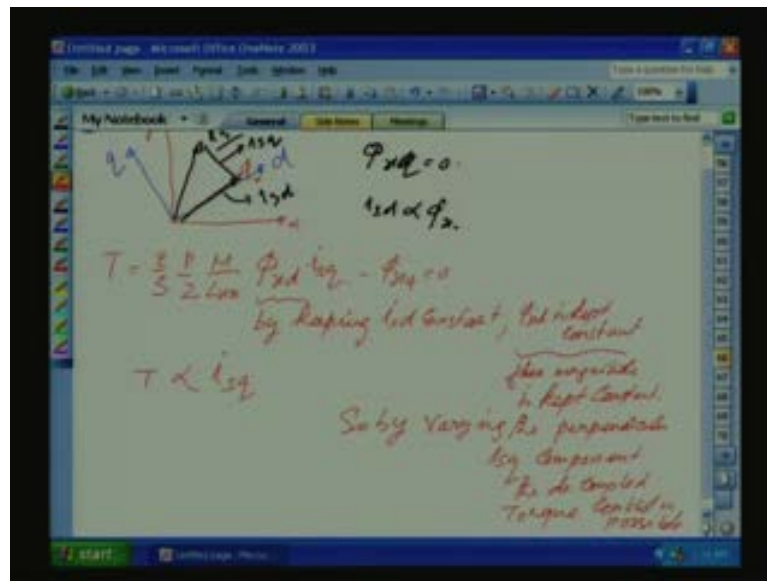 Untitled page - Microsoft Office OneNote 2003
File Edit View Insert Format Tools Window Help
Type a question for help
Back
100%
My Notebook
General
Side Notes
Meetings
Type text to find
q
isq
d
isd
α
φrq = 0
isd ∝ φr
T = P/2 M/Lrr φrd isq - φrq = 0
by keeping isd constant, is kept constant
T ∝ isq
flux magnitude
is kept constant.
So by varying the perpendicular
isq component
the decoupled
Torque Control is
possible
start
Untitled page - Micros...